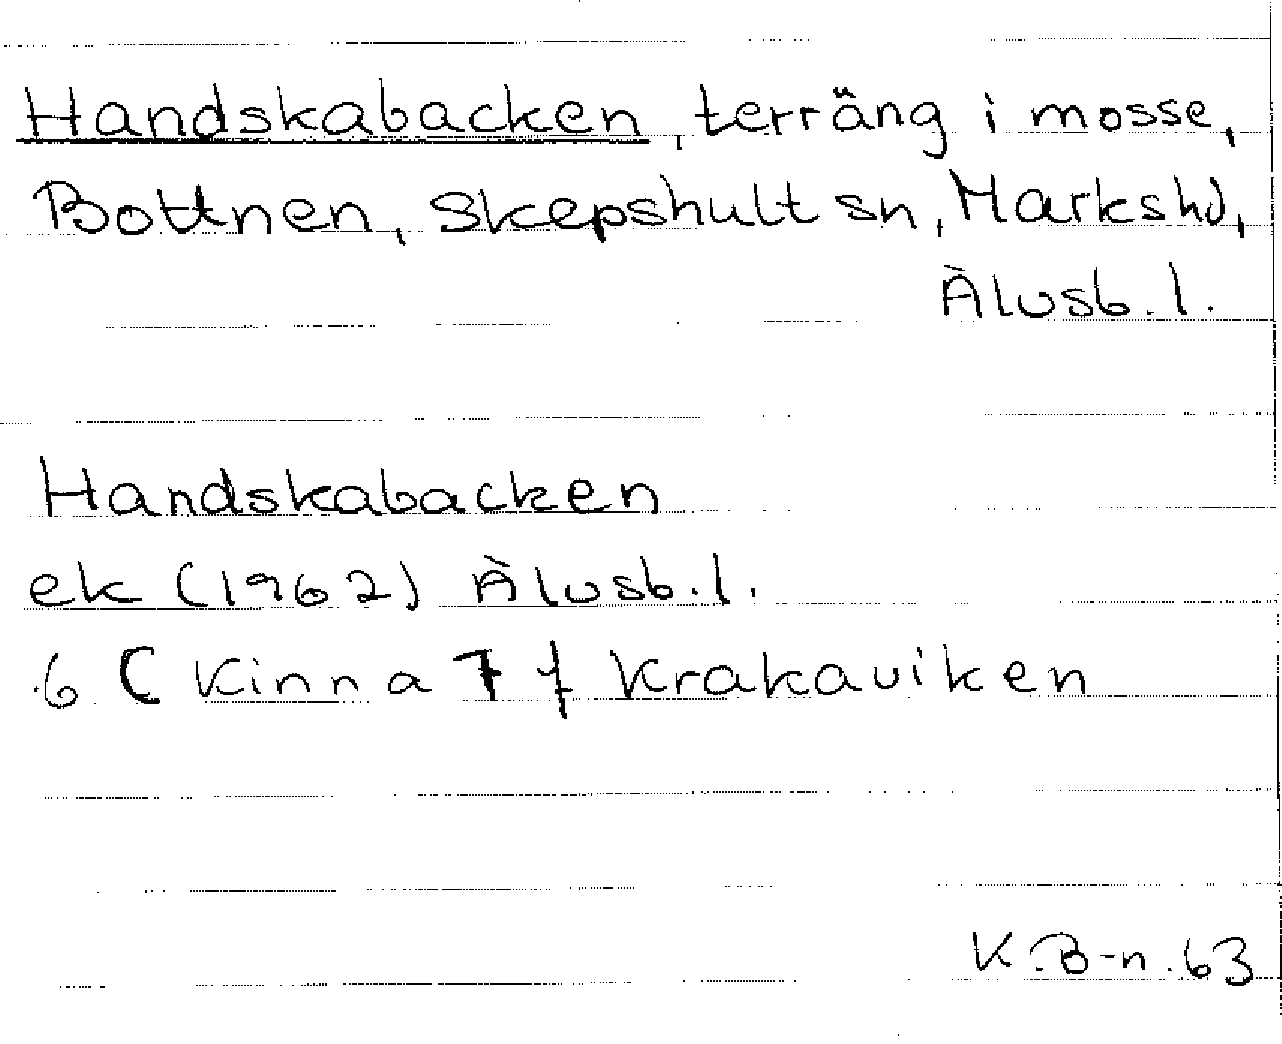 Handskabacken, terräng i mosse,
Bottnen, Skepshult sn, Markshd,
Älvsb. l.
Handskabacken
ek (1962) Älvsb. l.
6 C Kinna 7 f Krakaviken
K.B-n. 63